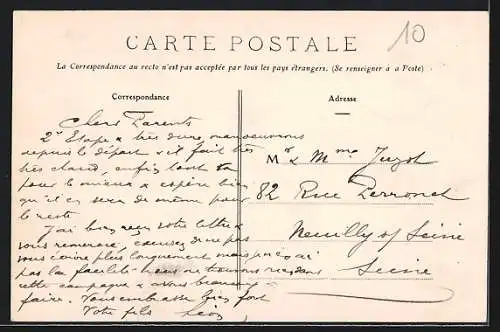 10
CARTE POSTALE
La Correspondance au recto n'est pas acceptée par tous les pays étrangers. (Se renseigner à la Poste)
Correspondance
Adresse
Chers Parents
2e Etape très dure, manoeuvrons
depuis le départ et il fait très
très chaud, enfin tout va
pour le mieux & espère bien
qu'il en sera de même pour
le reste
J'ai bien reçu votre lettre &
vous remercie, excusez de ne pas
vous écrire plus longuement mais n'ai
pas la facilité nous ne trouvons rien dans
cette campagne & avons beaucoup à
faire. Vous embrasse bien fort
Votre fils Léon
Mr & Mme Juzot
82 Rue Perronet
Neuilly s/ Seine
Seine